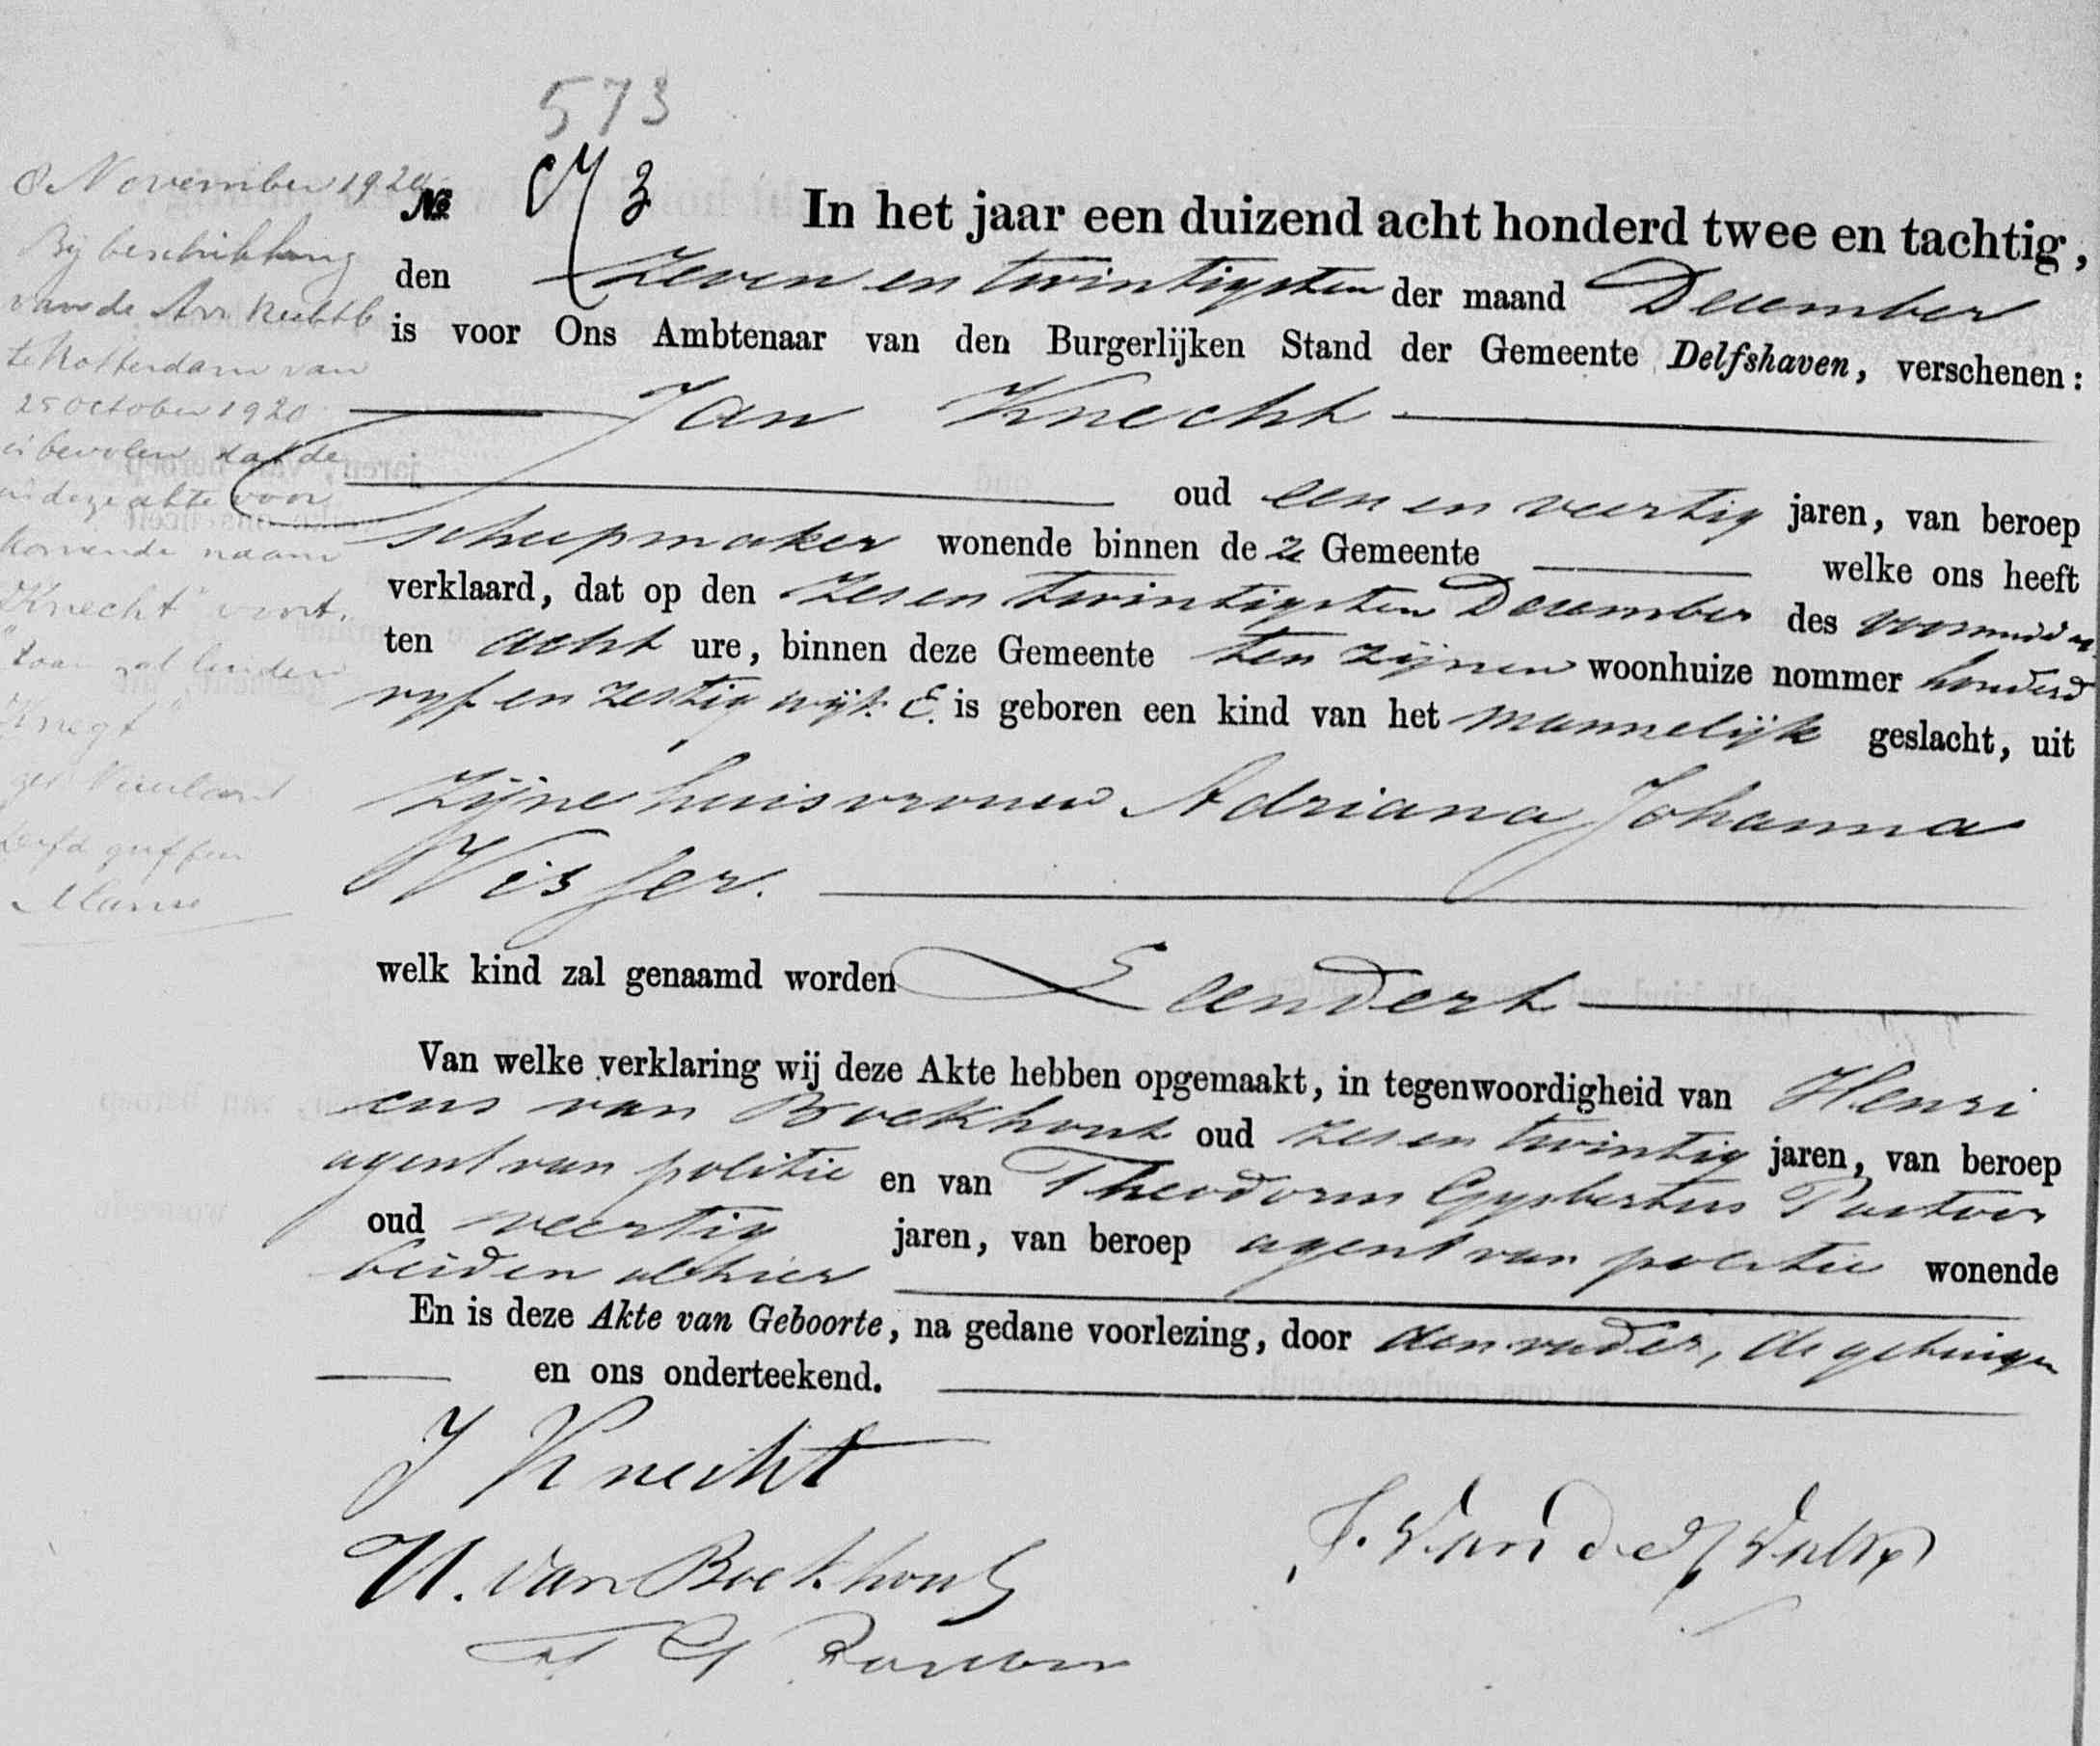 573
8 November 1920
Bij beschikking
van de Arr. Rechtb
te Rotterdam van
25 October 1920
is bevolen dat de
in deze akte voor
komende naam
"Knecht" voort
zal luiden
"Knegt"
No 573 In het jaar een duizend acht honderd twee en tachtig,
den zeven en twintigsten der maand December
is voor Ons Ambtenaar van den Burgerlijken Stand der Gemeente Delfshaven, verschenen:
Jan Knecht
oud een en veertig jaren, van beroep
scheepmaker wonende binnen deze Gemeente welke ons heeft
verklaard, dat op den zes en twintigsten December des voormiddags
ten acht ure, binnen deze Gemeente ten zijnen woonhuize nommer honderd
vijf en zestig wijk E. is geboren een kind van het mannelijk geslacht, uit
zijne huisvrouw Adriana Johanna
Visser.
welk kind zal genaamd worden Leendert
Van welke verklaring wij deze Akte hebben opgemaakt, in tegenwoordigheid van Henri
cus van Boekhout oud zes en twintig jaren, van beroep
agent van politie en van Theodorus Gysbertus Pastoor
oud veertig jaren, van beroep agent van politie wonende
beiden alhier
En is deze Akte van Geboorte, na gedane voorlezing, door den vader, de getuigen
en ons onderteekend.
J Knecht
H. van Boekhout